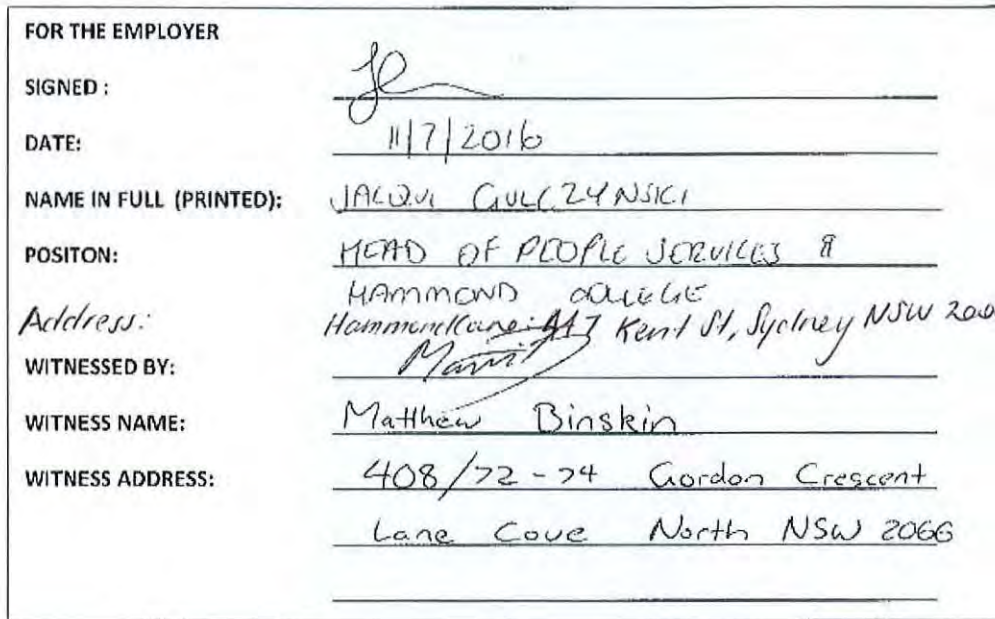 FOR THE EMPLOYER
SIGNED :
DATE: 11/7/2016
NAME IN FULL (PRINTED): JACQUI GULCZYNSKI
POSITON: HEAD OF PEOPLE SERVICES &
HAMMOND COLLEGE
Address: Hammondcare: 447 Kent St, Sydney NSW 200
WITNESSED BY:
WITNESS NAME: Matthew Binskin
WITNESS ADDRESS: 408/72-74 Gordon Crescent
Lane Cove North NSW 2066